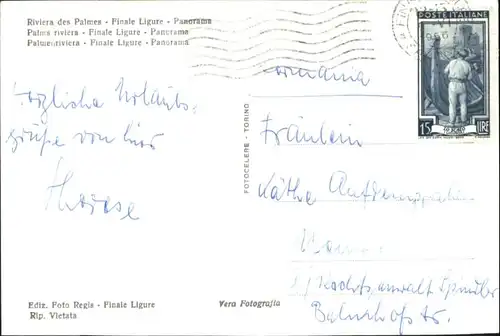 Riviera des Palmes - Finale Ligure - Panorama
Palma riviera - Finale Ligure - Panorama
Palmenriviera - Finale Ligure - Panorama
Herzliche Urlaubs-
grüße von hier
Therese
Ediz. Foto Regis - Finale Ligure
Rip. Vietata
Vera Fotografia
FOTOCELERE - TORINO
POSTE ITALIANE
15 LIRE
Germania
Fräulein
Käthe
b/ Rechtsanwalt
Bahnhofstr.